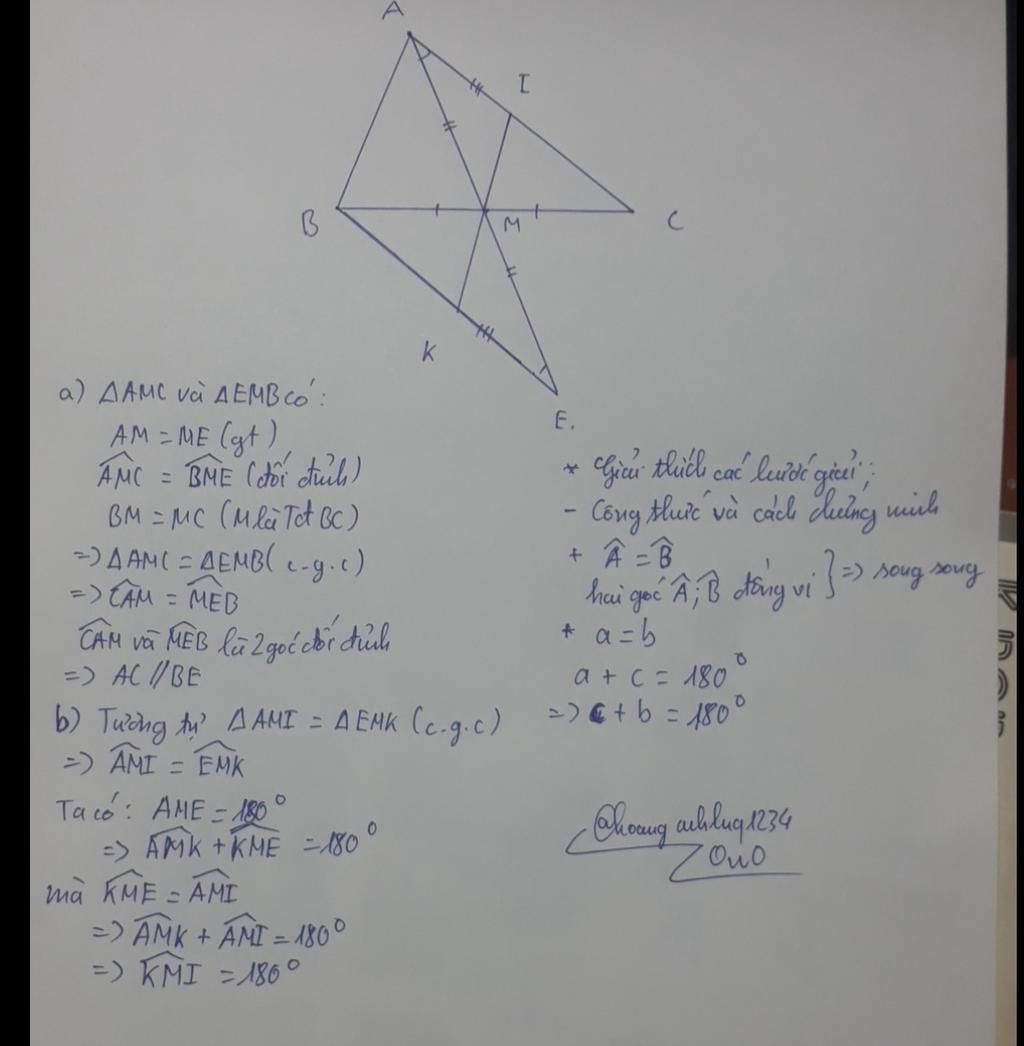 A
I
B
M
C
K
E.
a) ΔAMC và ΔEMB có:
AM = ME (gt)
\widehat{AMC} = \widehat{BME} (đối đỉnh)
BM = MC (M là Tđ BC)
=> ΔAMC = ΔEMB( c-g.c)
=> \widehat{CAM} = \widehat{MEB}
\widehat{CAM} và \widehat{MEB} là 2 góc đối đỉnh
=> AC // BE
b) Tương tự ΔAMI = ΔEMK (c-g.c)
=> \widehat{AMI} = \widehat{EMK}
Ta có: AME = 180°
=> \widehat{AMK} + \widehat{KME} = 180°
mà \widehat{KME} = \widehat{AMI}
=> \widehat{AMK} + \widehat{AMI} = 180°
=> \widehat{KMI} = 180°
* Giải thích các lược giải;
- Công thức và cách chứng minh
+ \widehat{A} = \widehat{B}
hai góc \widehat{A}; \widehat{B} đồng vị } => song song
* a = b
a + c = 180°
=> c + b = 180°
OwO